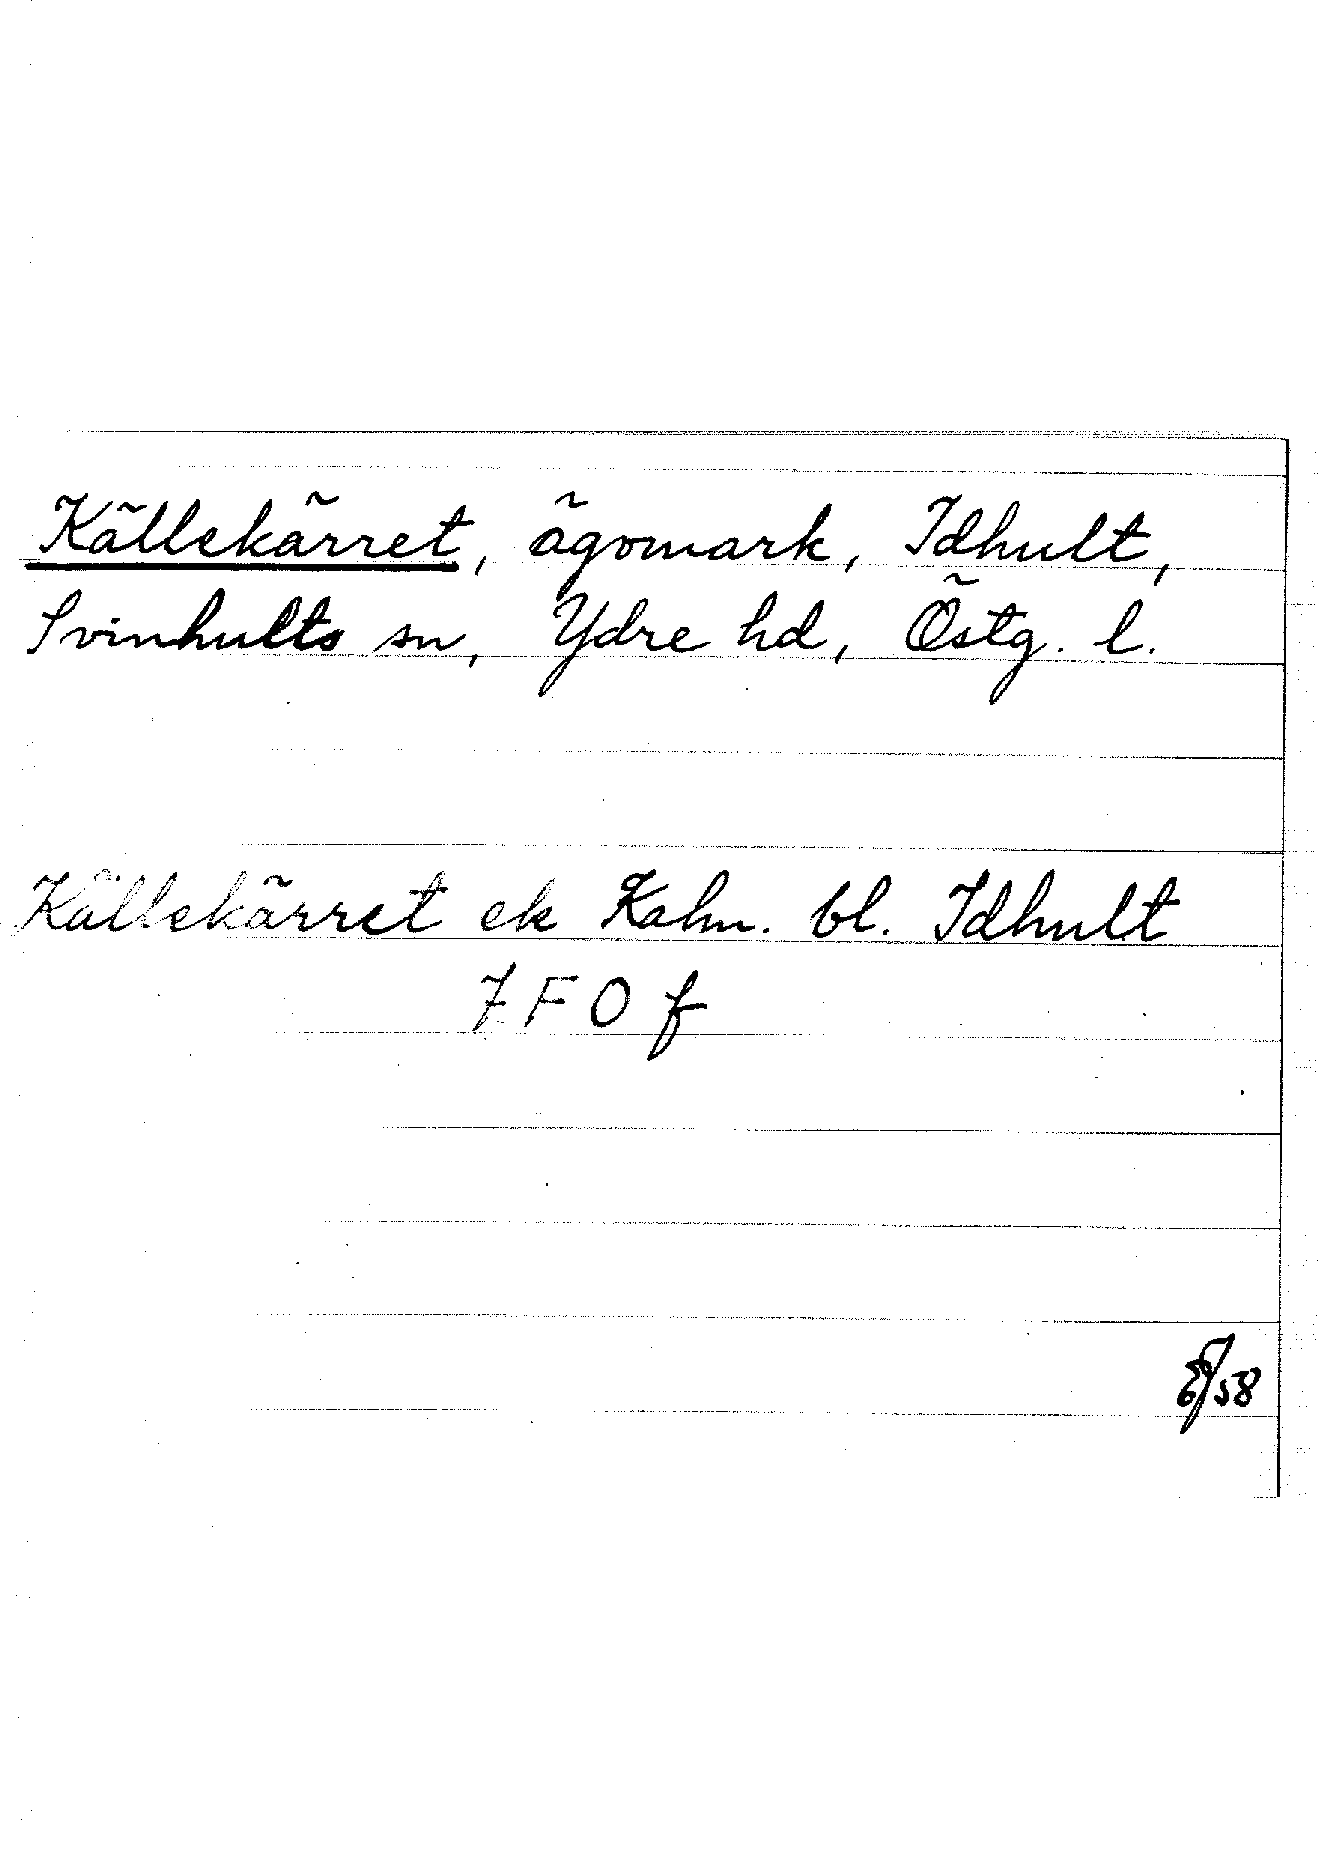 Källekärret, ägomark, Idhult,
Svinhults sn, Ydre hd, Östg. l.
Källekärret ek Kalm. bl. Idhult
7 F O f
/58